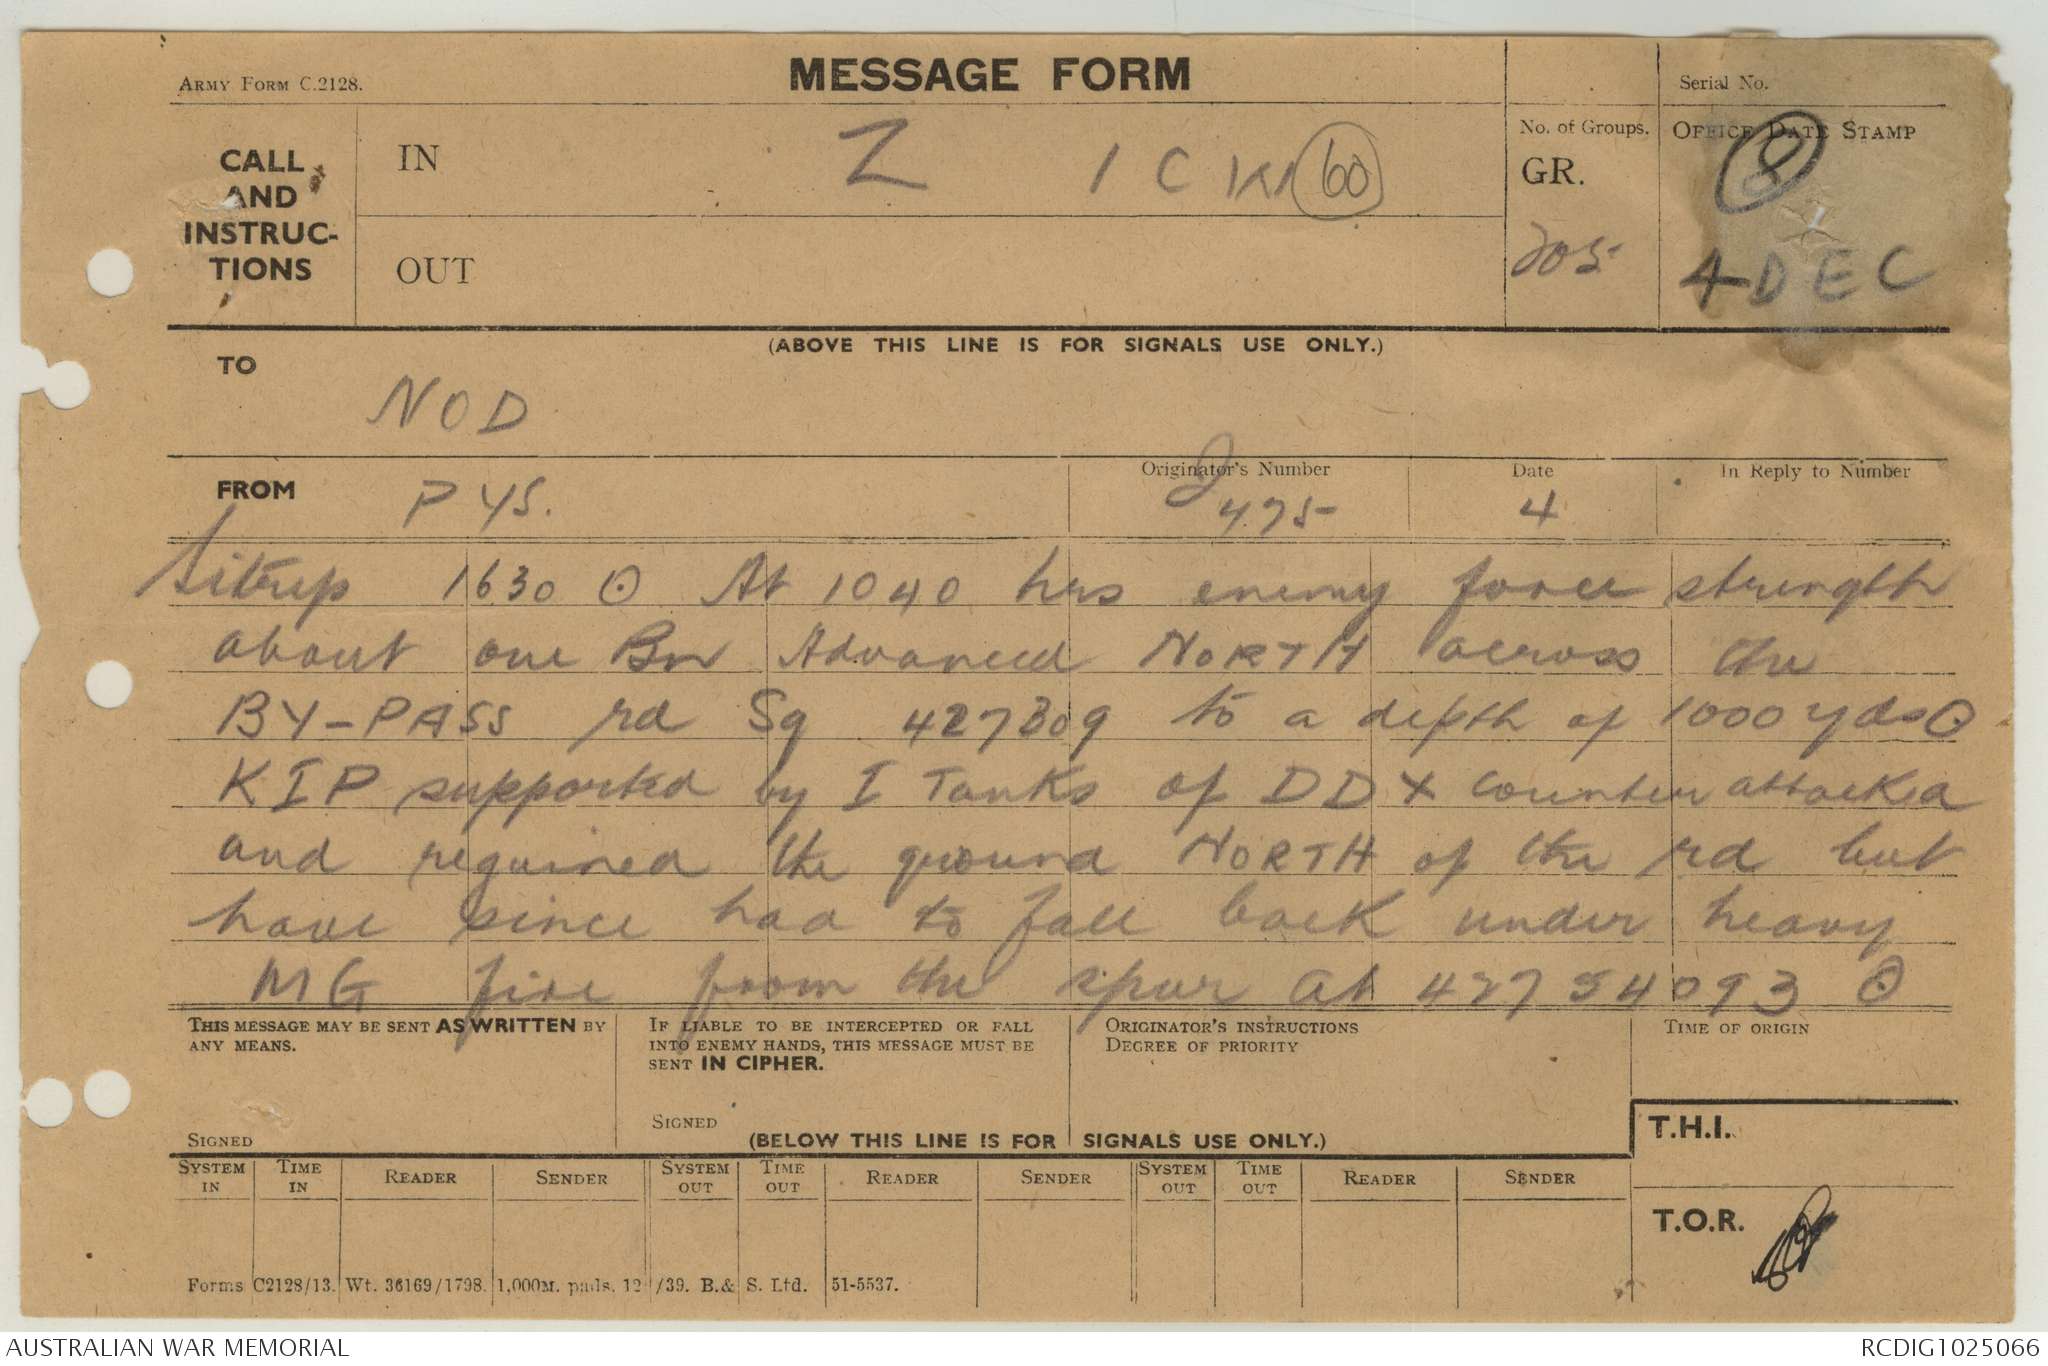 ARMY FORM C.2128.
MESSAGE FORM
Serial No.
CALL AND INSTRUC-TIONS
IN
Z 1 C KI 60
No. of Groups.
GR.
205
OFFICE DATE STAMP
8
4 DEC
OUT
(ABOVE THIS LINE IS FOR SIGNALS USE ONLY.)
TO
NOD
FROM
PYS.
Originator's Number
475
Date
4
In Reply to Number
Sitrep 1630 ⊙ At 1040 hrs enemy force strength
about one Bn Advanced NORTH across the
BY-PASS rd Sq 427309 to a depth of 1000 yds ⊙
KIP supported by I Tanks of DDX counter attacked
and regained the ground NORTH of the rd but
have since had to fall back under heavy
MG fire from the spur at 42734093 ⊙
THIS MESSAGE MAY BE SENT AS WRITTEN BY
ANY MEANS.
SIGNED
IF LIABLE TO BE INTERCEPTED OR FALL
INTO ENEMY HANDS, THIS MESSAGE MUST BE
SENT IN CIPHER.
SIGNED
ORIGINATOR'S INSTRUCTIONS
DEGREE OF PRIORITY
TIME OF ORIGIN
T.H.I.
(BELOW THIS LINE IS FOR SIGNALS USE ONLY.)
SYSTEM IN
TIME IN
READER
SENDER
SYSTEM OUT
TIME OUT
READER
SENDER
SYSTEM OUT
TIME OUT
READER
SENDER
T.O.R.
Forms C2128/13. Wt. 36169/1798. 1,000M. pads. 12/39. B.& S. Ltd. 51-5537.
AUSTRALIAN WAR MEMORIAL
RCDIG1025066